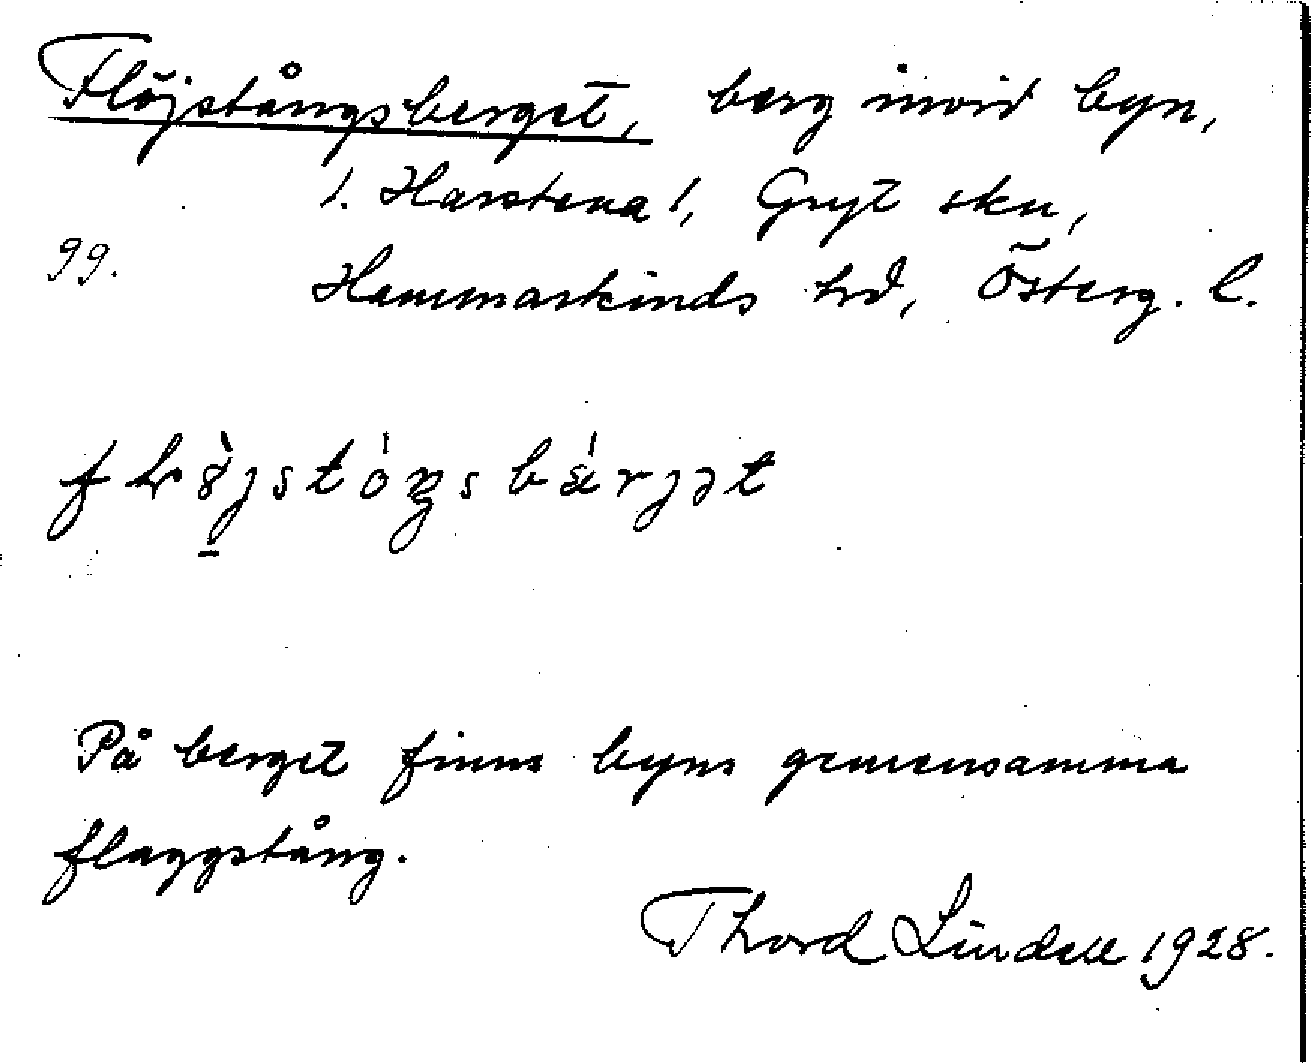 Flöjstångsberget, berg invid byn,
1. Harstena 1, Gryt skn,
99.
Hammarkinds hd, Österg. l.
På berget finns byns gemensamma
flaggstång.
Thord Lindell 1928.